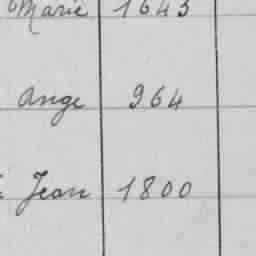 Marie 1643
Ange 964
Jean 1800